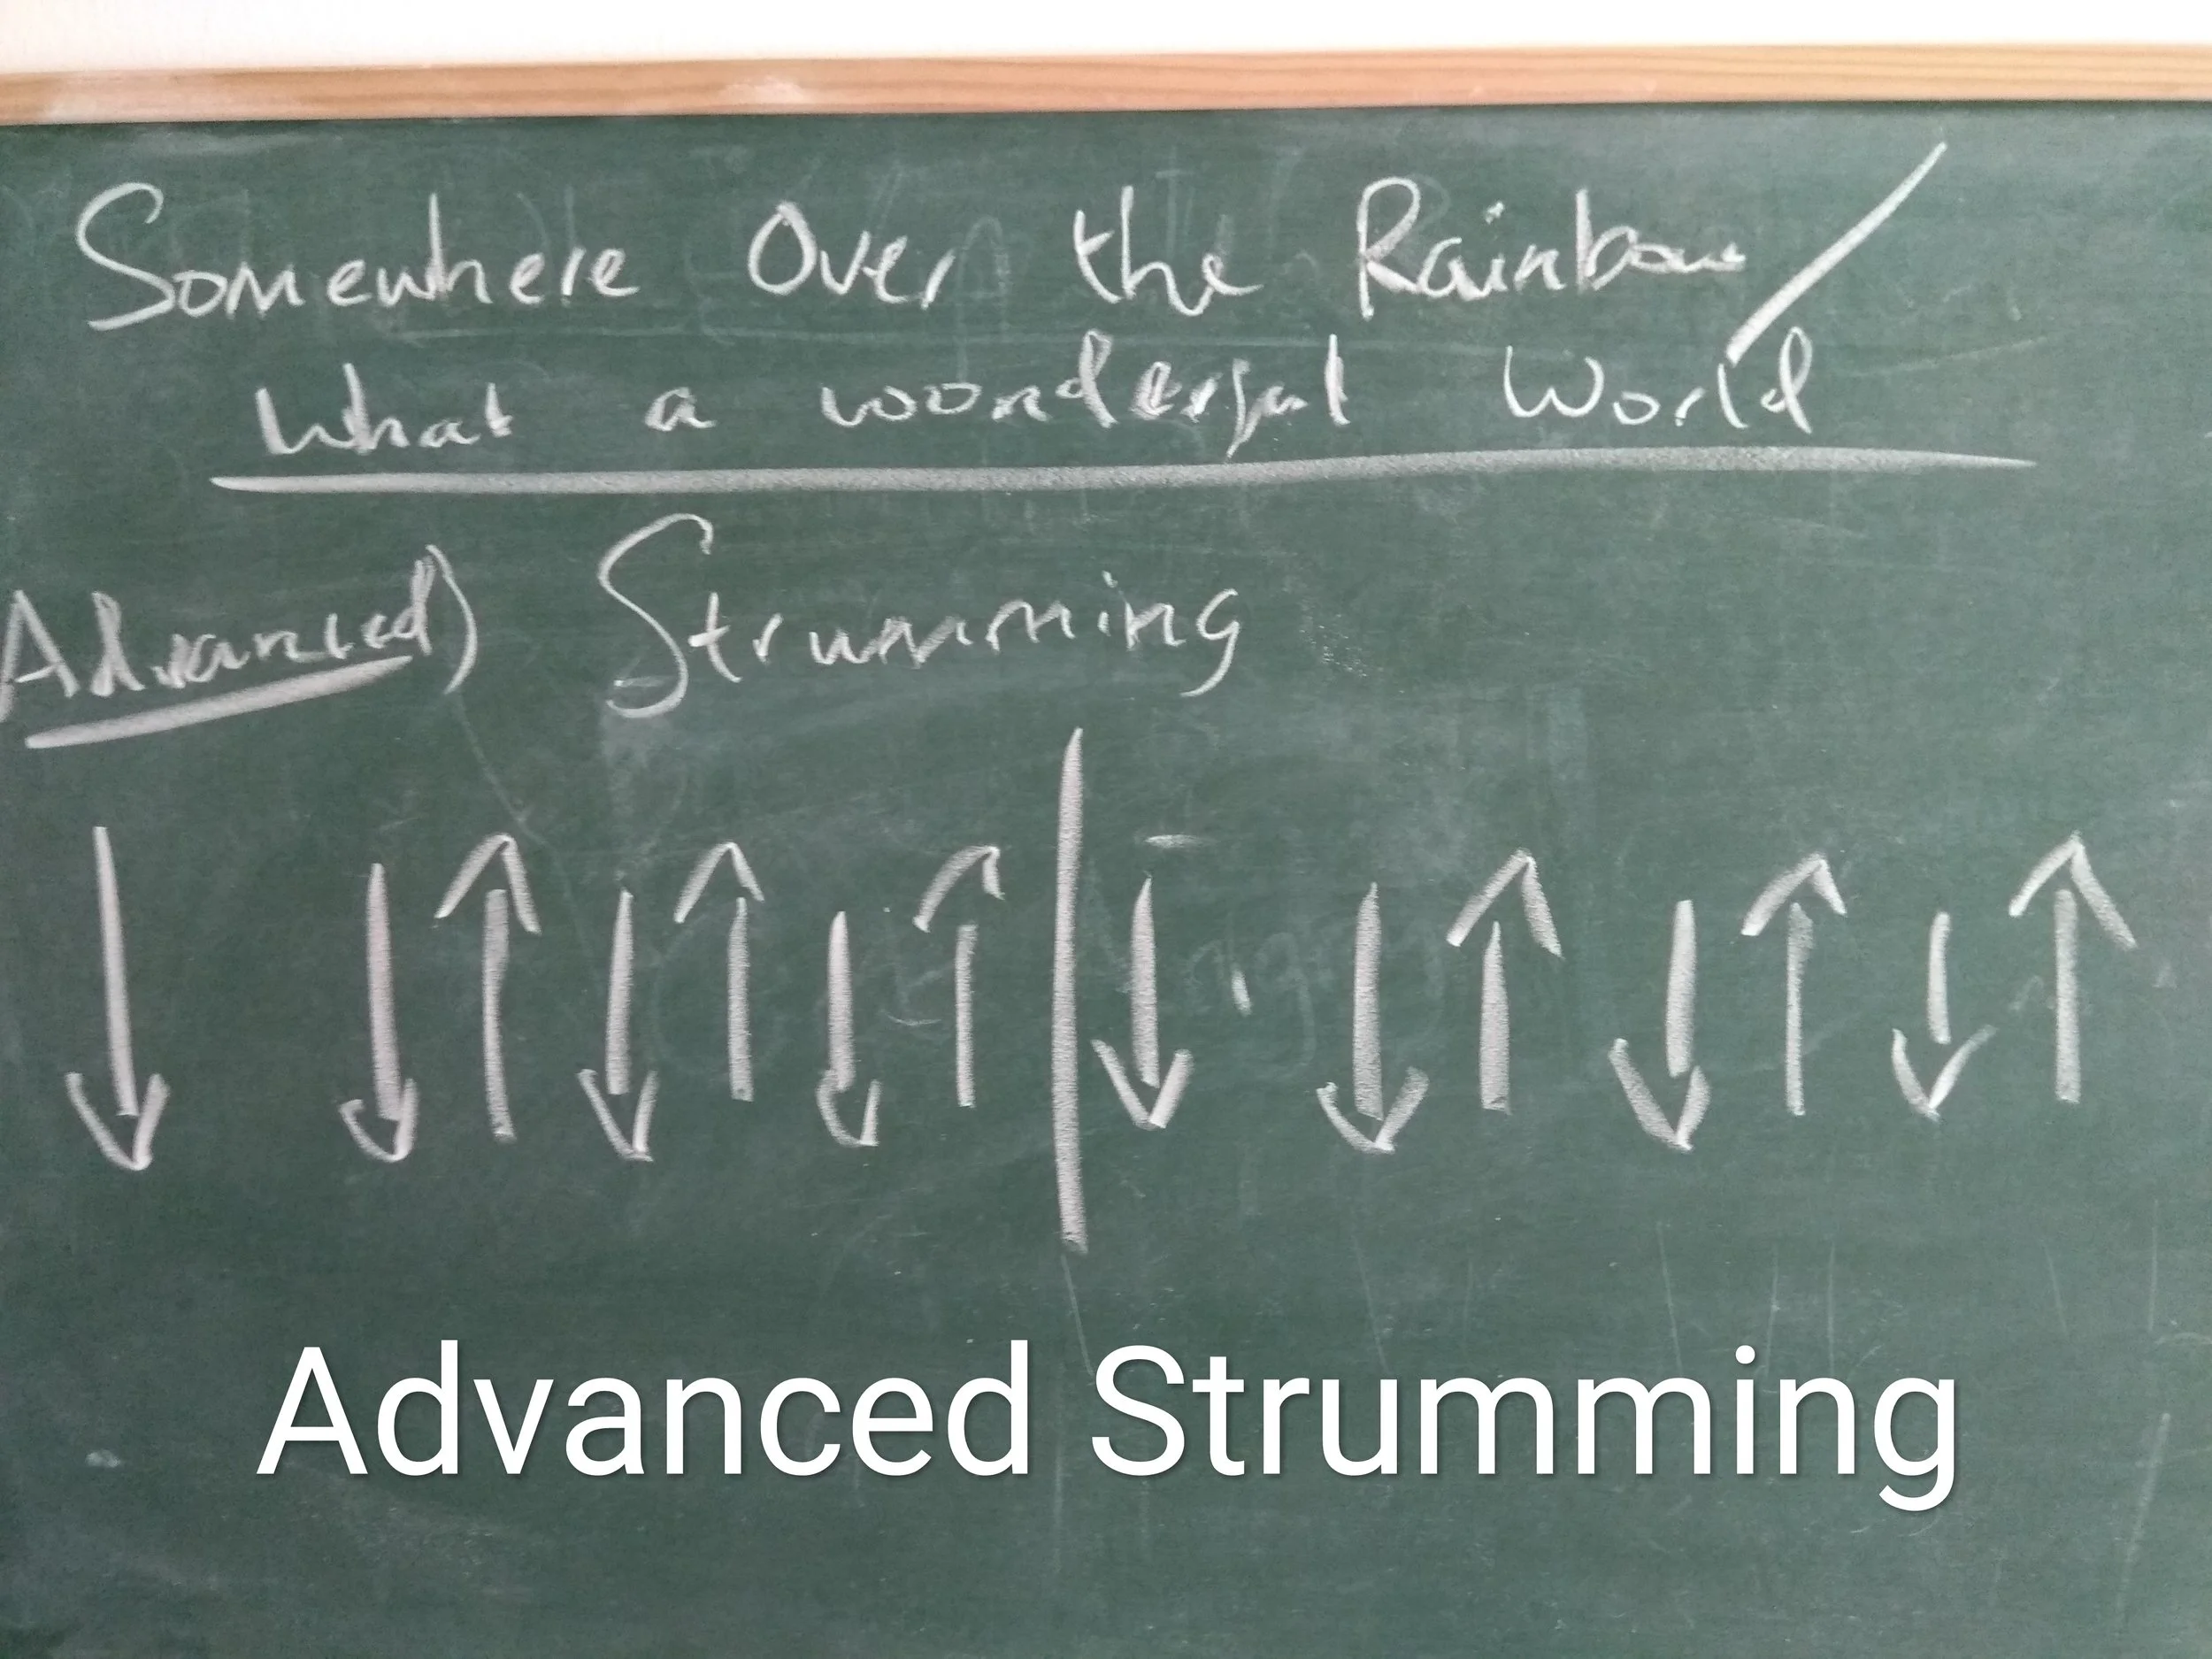 Somewhere Over the Rainbow/
What a wonderful World
Advanced) Strumming
↓ ↓ ↑ ↓ ↑ ↓ ↑ | ↓ ↓ ↑ ↓ ↑ ↓ ↑
Advanced Strumming